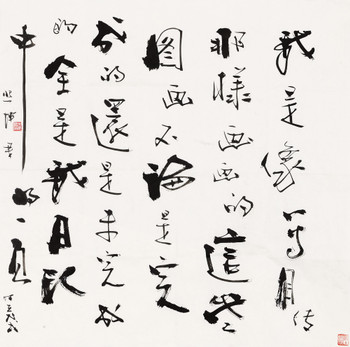 我是像写自传
那樣画画的這些
图画不論是完
成的還是未完成
的全是我日记
中的一页